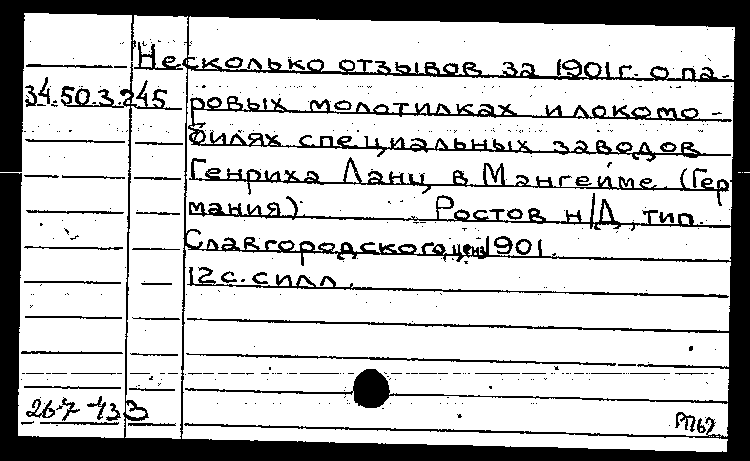 Несколько отзывов за 1901г. о па-
34.50.3.245 ровых молотилках и локомо-
билях специальных заводов
Генриха Ланц, в Мангейме (Гер
мания) Ростов н/Д, тип.
Славгородского, ценз 1901.
12 с. с илл.
267 433 РП67